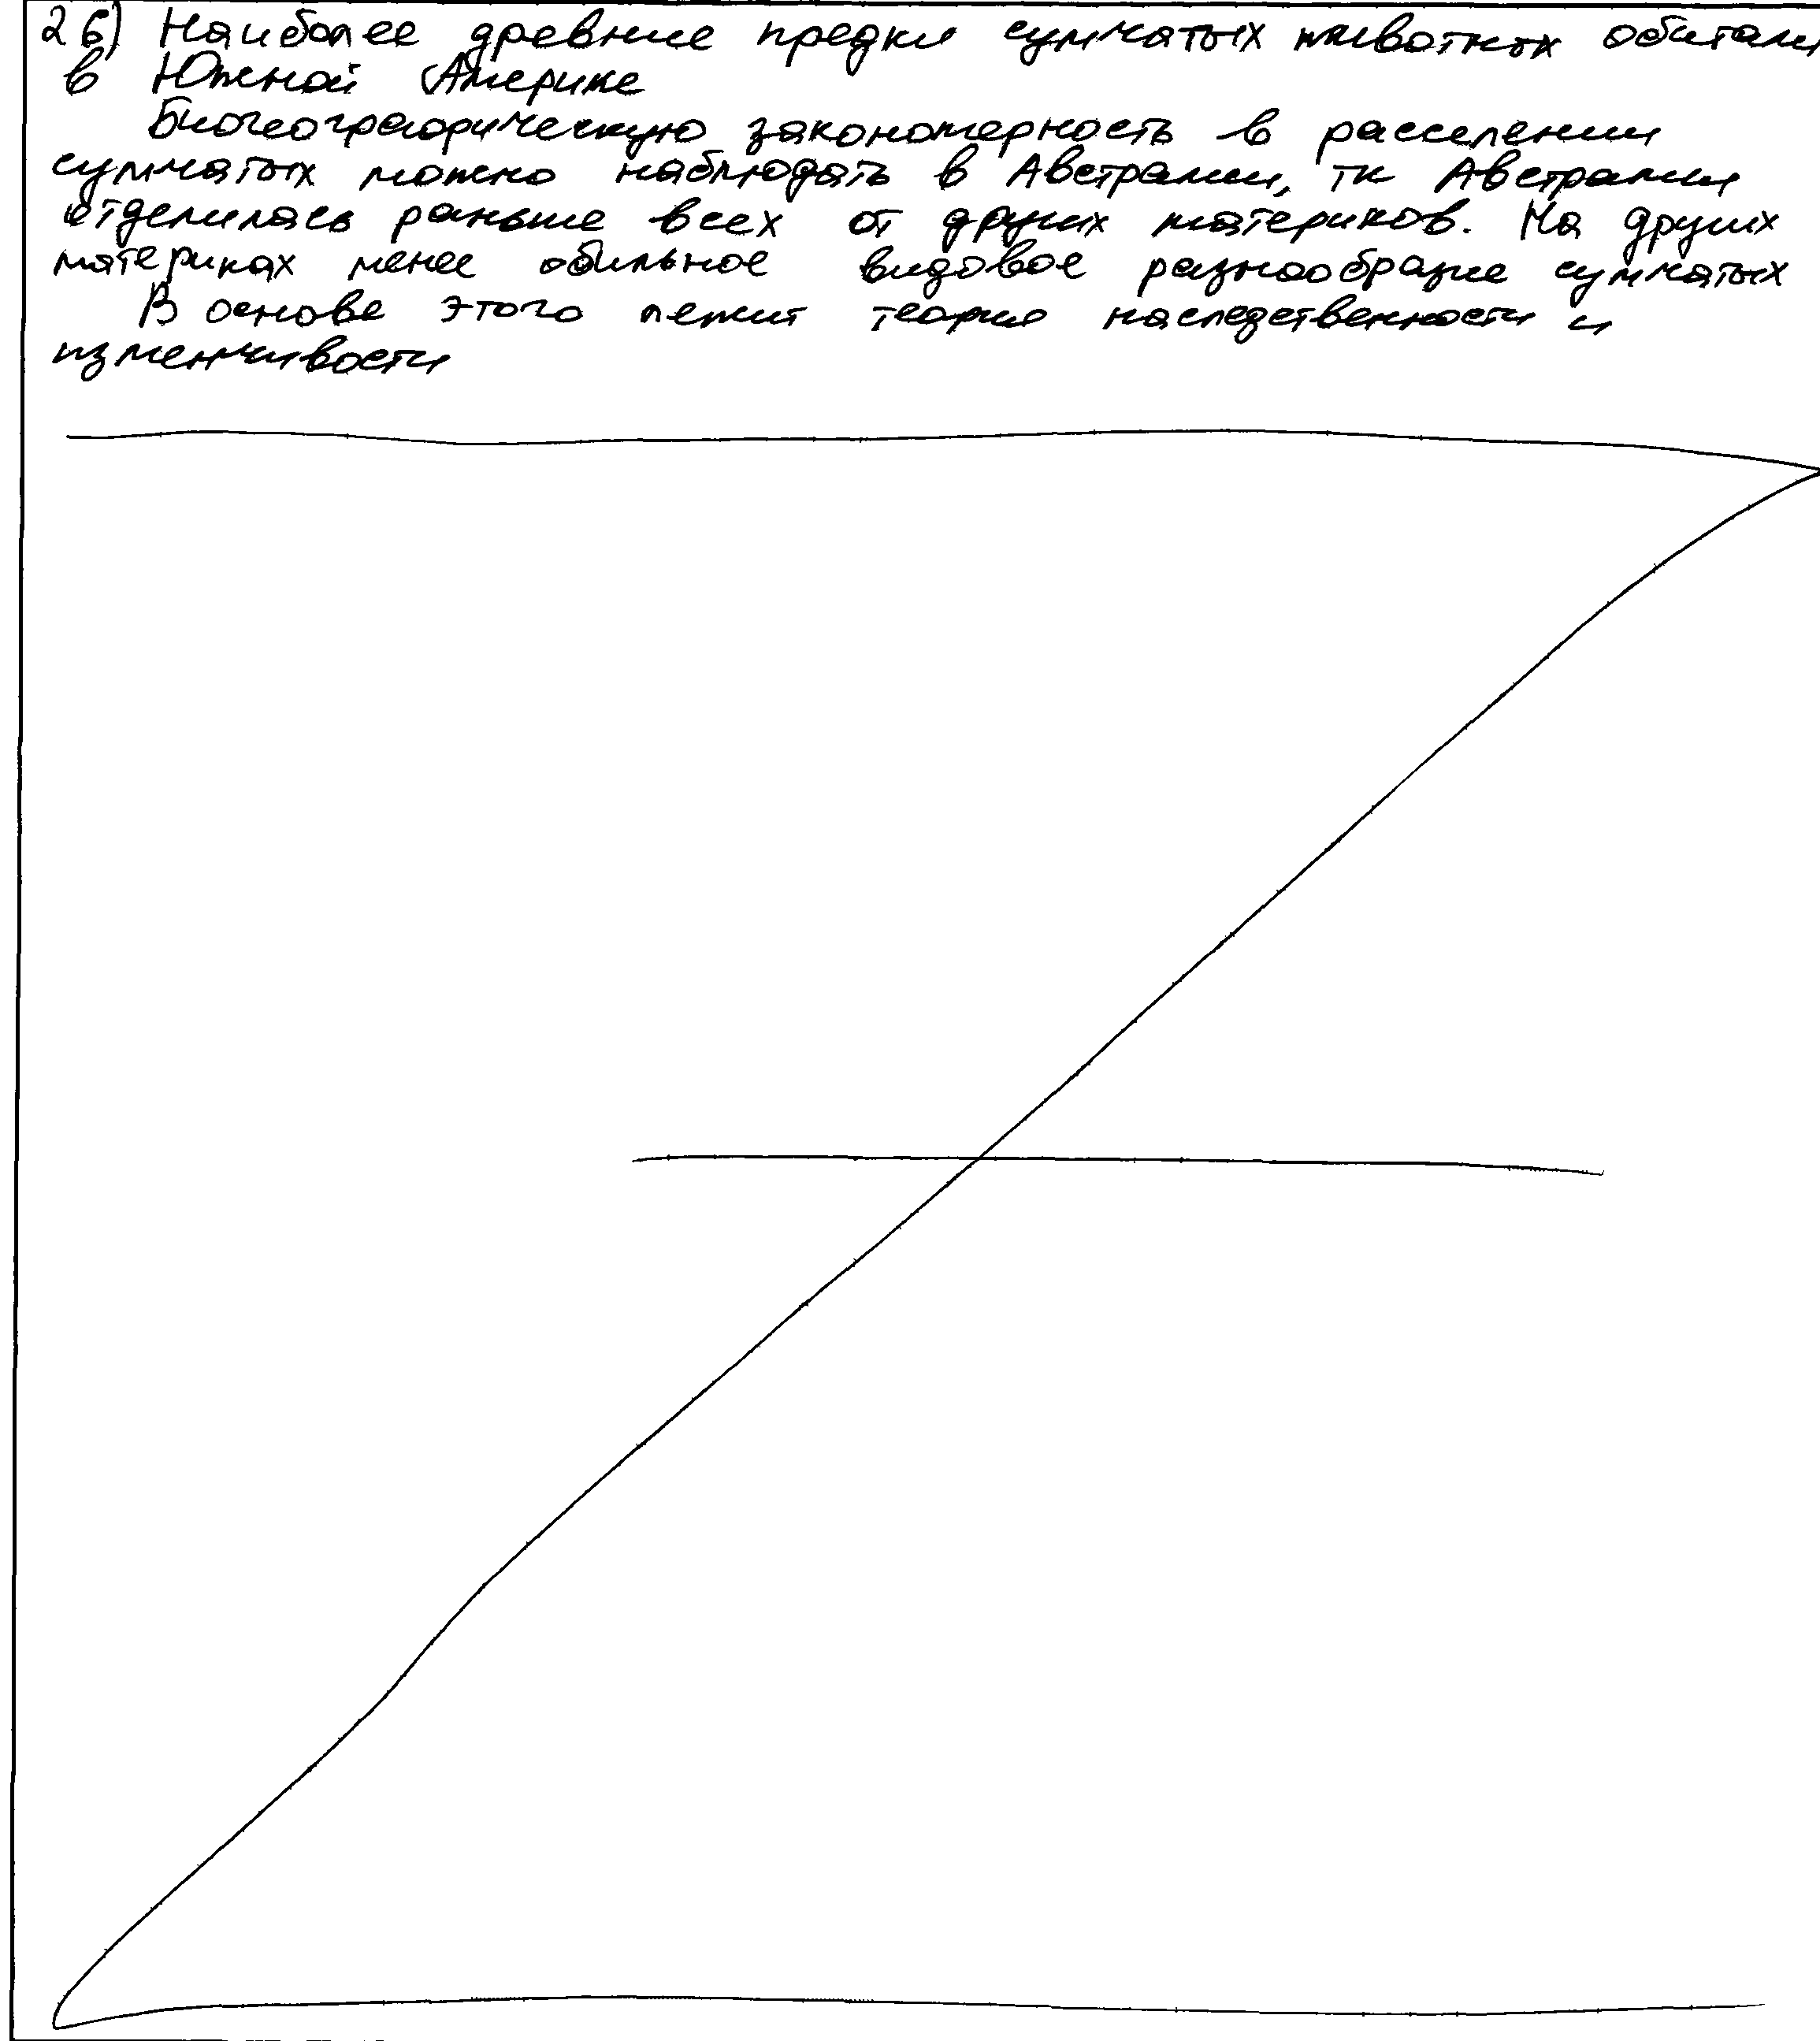 26) Наиболее древние предки сумчатых животных обитали
в Южной Америке
Биогеографическую закономерность в расселении
сумчатых можно наблюдать в Австралии, тк Австралия
отделилась раньше всех от других материков. На других
материках менее обильное видовое разнообразие сумчатых
В основе этого лежит теория наследственности и
изменчивости